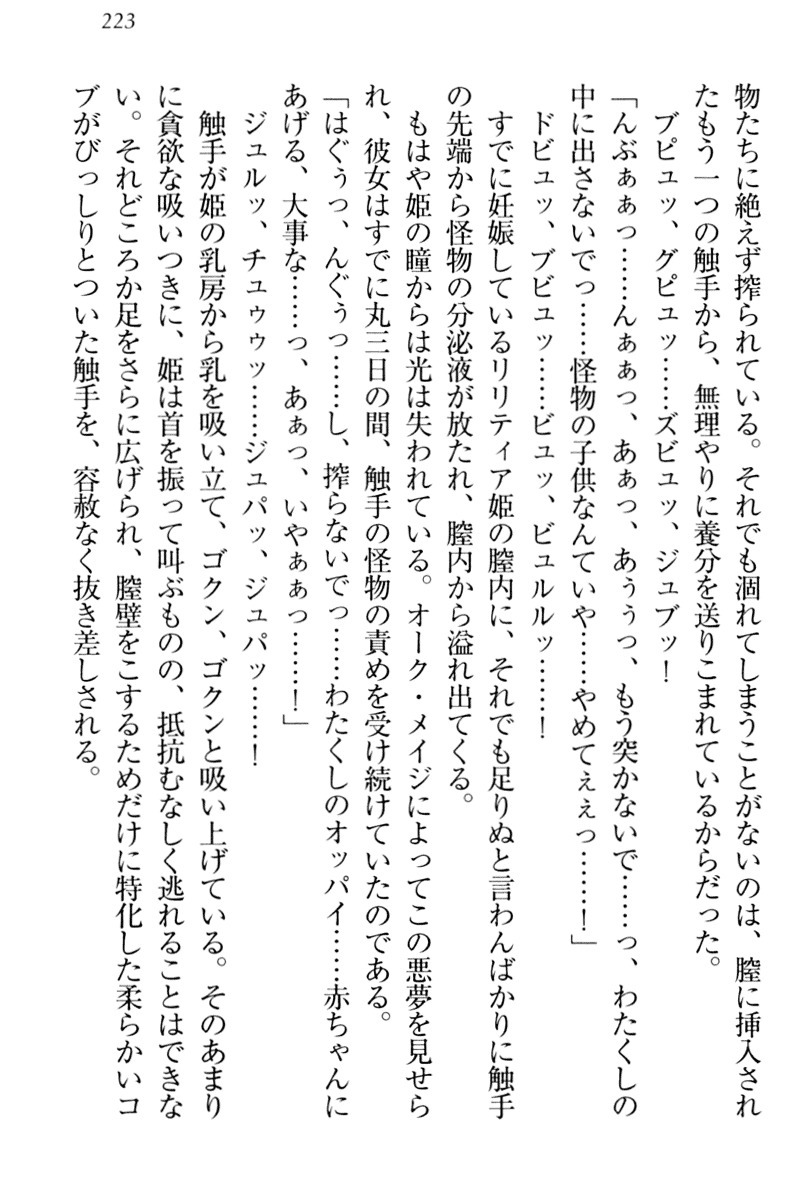 223
物たちに絶えず搾られている。それでも涸れてしまうことがないのは、膣に挿入され
たもう一つの触手から、無理やりに養分を送りこまれているからだった。
ブピュッ、グピュッ……ズビュッ、ジュブッ！
「んぶぁぁっ……んぁぁっ、あぁっ、あぅぅっ、もう突かないで……っ、わたくしの
中に出さないでっ……怪物の子供なんていや……やめてぇぇっ……！」
ドビュッ、ブビュッ……ビュッ、ビュルルッ……！
すでに妊娠しているリリティア姫の膣内に、それでも足りぬと言わんばかりに触手
の先端から怪物の分泌液が放たれ、膣内から溢れ出てくる。
もはや姫の瞳からは光は失われている。オーク・メイジによってこの悪夢を見せら
れ、彼女はすでに丸三日の間、触手の怪物の責めを受け続けていたのである。
「はぐぅっ、んぐぅっ……し、搾らないでっ……わたくしのオッパイ……赤ちゃんに
あげる、大事な……っ、あぁっ、いやぁぁっ……！」
ジュルッ、チュゥゥッ……ジュパッ、ジュパッ……！
触手が姫の乳房から乳を吸い立て、ゴクン、ゴクンと吸い上げている。そのあまり
に貪欲な吸いつきに、姫は首を振って叫ぶものの、抵抗むなしく逃れることはできな
い。それどころか足をさらに広げられ、膣壁をこするためだけに特化した柔らかいコ
ブがびっしりとついた触手を、容赦なく抜き差しされる。